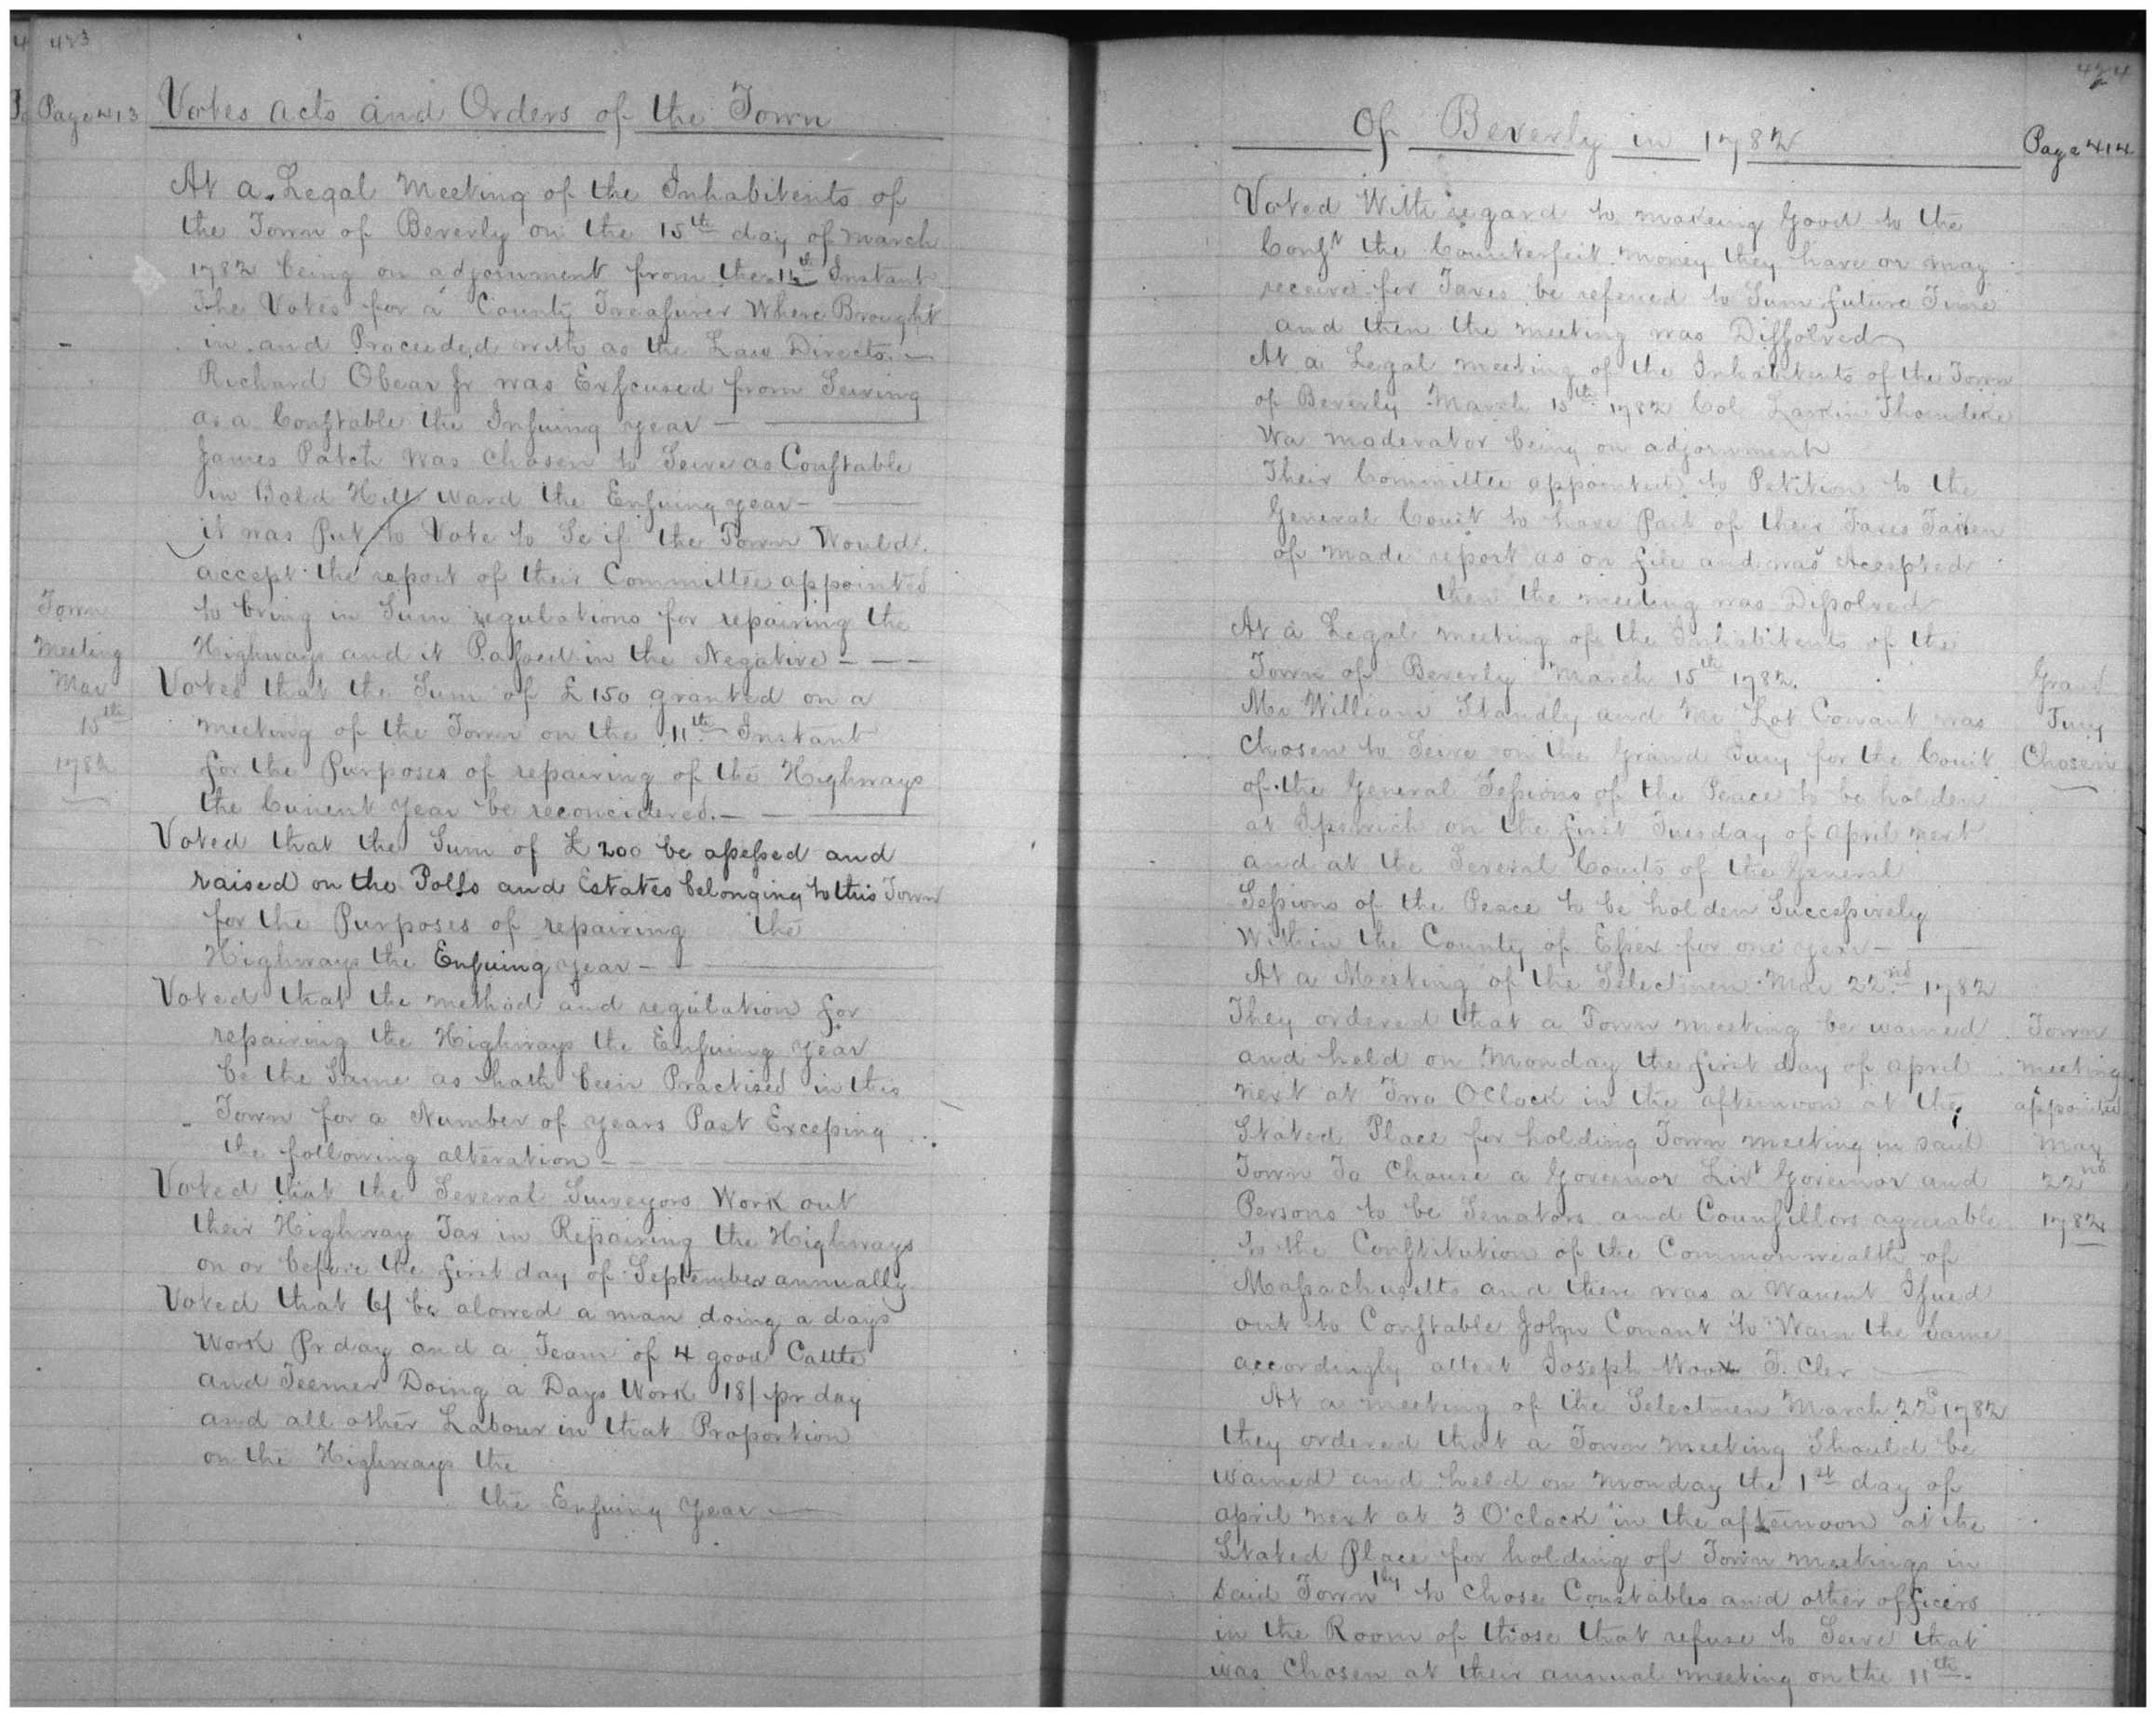 423
Page 413
Votes acts and Orders of the Town
At a Legal Meeting of the Inhabitents of
the Town of Beverly on the 15th day of March
1782 being on adjornment from the 11th Instant
The Votes for a County Treasurer Where Brought
in and Proceeded with as the Law Directs —
Richard Obear Jr was Exscused from Serving
as a Constable the Insuing year —
James Patch was Chosen to Serve as Constable
in Bald Hill ward the Ensuing year —
it was Put to Vote to Se if the Town Would
accept the report of their Committee appointed
to bring in Sum regulations for repairing the
Highways and it Passed in the Negative - - -
Voted that the Sum of £150 granted on a
meeting of the Town on the 11th Instant
for the Purposes of repairing of the Highways
the Current year be reconcidered. —
Voted that the Sum of £200 be assessed and
raised on the Polls and Estates belonging to this Town
for the Purposes of repairing the
Highways the Ensuing year —
Voted that the method and regulation for
repairing the Highways the Ensuing year
be the Same as hath been Practised in this
Town for a Number of years Past Exceping
the following alteration —
Voted that the Several Surveyors Work out
their Highway Tax in Repairing the Highways
on or before the first day of September annually
Voted that 6/ be alowed a man doing a days
Work Pr day and a Team of 4 good Cattle
and Teemer Doing a Days Work 18/ pr day
and all other Labour in that Proportion
on the Highways the
the Ensuing Year —
Town
Meeting
Mar
15th
1782
424
Of Beverly in 1782
Page 414
Voted With regard to makeing Good to the
Const the Counterfeit money they have or may
receive for Taxes be refered to Sum future Time
and then the meeting was Dissolved
At a Legal meeting of the Inhabitents of the Town
of Beverly March 15th 1782 Col Larkin Thorndike
Wa moderator being on adjornment
Their Committee appointed to Petition to the
General Court to have Part of their Taxes Taken
of made report as on file and was Acespted
then the meeting was Dissolved
At a Legal meeting of the Inhabitents of the
Town of Beverly March 15th 1782.
Mr William Standly and Mr Lot Conant was
Chosen to Serve on the Grand Jury for the Court
of the General Sessions of the Peace to be holden
at Ipswich on the first Tuesday of April next
and at the Several Courts of the General
Sessions of the Peace to be holden Successively
Within the County of Essex for one year —
Grand
Jury
Chosen
At a Meeting of the Selectmen Mar 22nd 1782
They ordered that a Town meeting be warned
and held on Monday the first day of april
next at Two OClock in the afternoon at the
Stated Place for holding Town meeting in said
Town To Chouse a Govenor Livt Govenor and
Persons to be Senators and Counsillors agreable
to the Constitution of the Commonwealth of
Massachusetts and there was a Warrent Issued
out to Constable John Conant to Warn the Same
accordingly attest Joseph Wood T. Cler
Town
meeting
appointed
Mar
22nd
1782
At a meeting of the Selectmen March 22d 1782
they ordered that a Town meeting Should be
warned and held on monday the 1st day of
april next at 3 O'clock in the afternoon at the
Stated Place for holding of Town meetings in
Said Town 1ly to Chose Constables and other officers
in the Room of those that refuse to Serve that
was Chosen at their annual meeting on the 11th